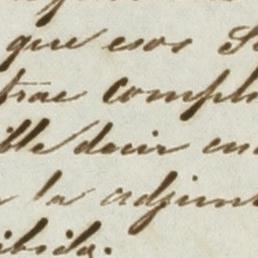 que esos S
trae compl
ible decir en
la adjunt
ibida.